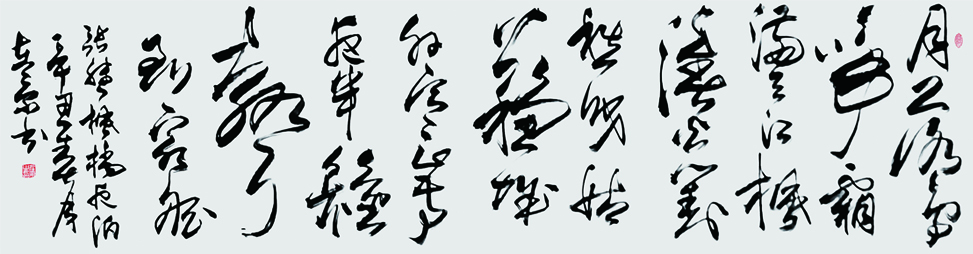 月落烏
啼霜
滿天江楓
漁火對
愁眠姑
蘇城
外寒山寺
夜半鐘
聲
到客船
張繼楓橋夜泊
辛丑春月
書